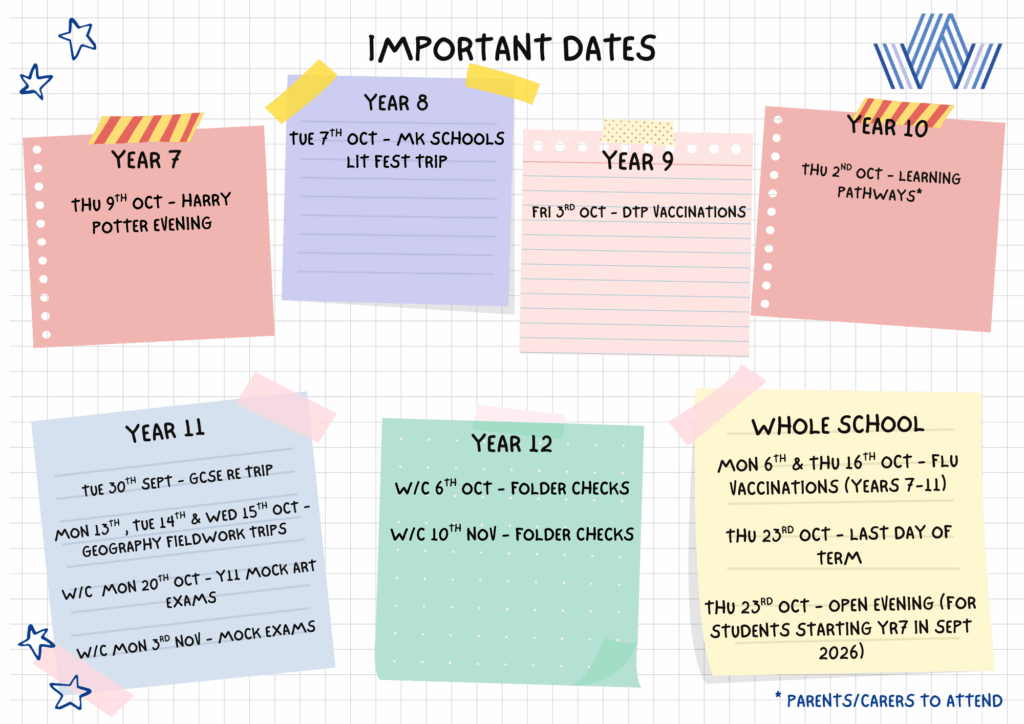 IMPORTANT DATES
YEAR 7
THU 9TH OCT - HARRY
POTTER EVENING
YEAR 8
TUE 7TH OCT - MK SCHOOLS
LIT FEST TRIP
YEAR 9
FRI 3RD OCT - DTP VACCINATIONS
YEAR 10
THU 2ND OCT - LEARNING
PATHWAYS*
YEAR 11
TUE 30TH SEPT - GCSE RE TRIP
MON 13TH , TUE 14TH & WED 15TH OCT -
GEOGRAPHY FIELDWORK TRIPS
W/C MON 20TH OCT - Y11 MOCK ART
EXAMS
W/C MON 3RD NOV - MOCK EXAMS
YEAR 12
W/C 6TH OCT - FOLDER CHECKS
W/C 10TH NOV - FOLDER CHECKS
WHOLE SCHOOL
MON 6TH & THU 16TH OCT - FLU
VACCINATIONS (YEARS 7-11)
THU 23RD OCT - LAST DAY OF
TERM
THU 23RD OCT - OPEN EVENING (FOR
STUDENTS STARTING YR7 IN SEPT
2026)
* PARENTS/CARERS TO ATTEND